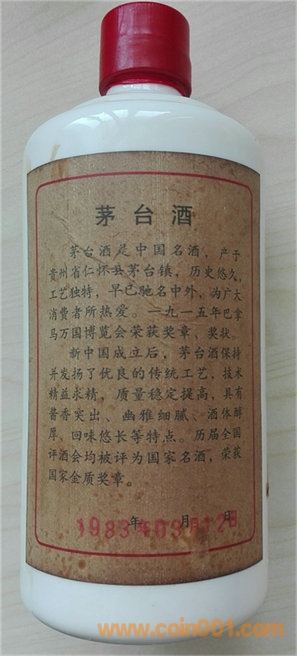 茅台酒
茅台酒是中国名酒，产于
贵州省仁怀县茅台镇，历史悠久，
工艺独特，早已驰名中外，为广大
消费者所热爱。一九一五年巴拿
马万国博览会荣获奖章、奖状。
新中国成立后，茅台酒保持
并发扬了优良的传统工艺，技术
精益求精，质量稳定提高，具有
酱香突出、幽雅细腻、酒体醇
厚、回味悠长等特点。历届全国
评酒会均被评为国家名酒，荣获
国家金质奖章。
1983年03月12日
www.coin001.com